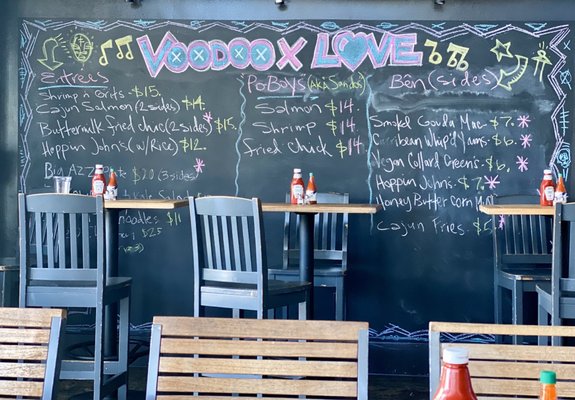 VOODOO x LOVE
Entrées
Shrimp n Grits. $15.
Cajun Salmon (2 sides) $14.
Buttermilk fried chic (2 sides) $15.
Hoppin Johns (w/Rice) $12.
Big Azz $20 (3-sides)
Salad
noodles $14
$25
PoBoys (AKA Sandos)
Salmon $14.
Shrimp $14.
Fried Chick $14.
Bên (sides)
Smoked Gouda Mac $7.
Carribean Whip'd Yams $6.
Vegan Collard Greens $6.
Hoppin Johns $7
Honey Butter corn Muf
Cajun Fries $5.